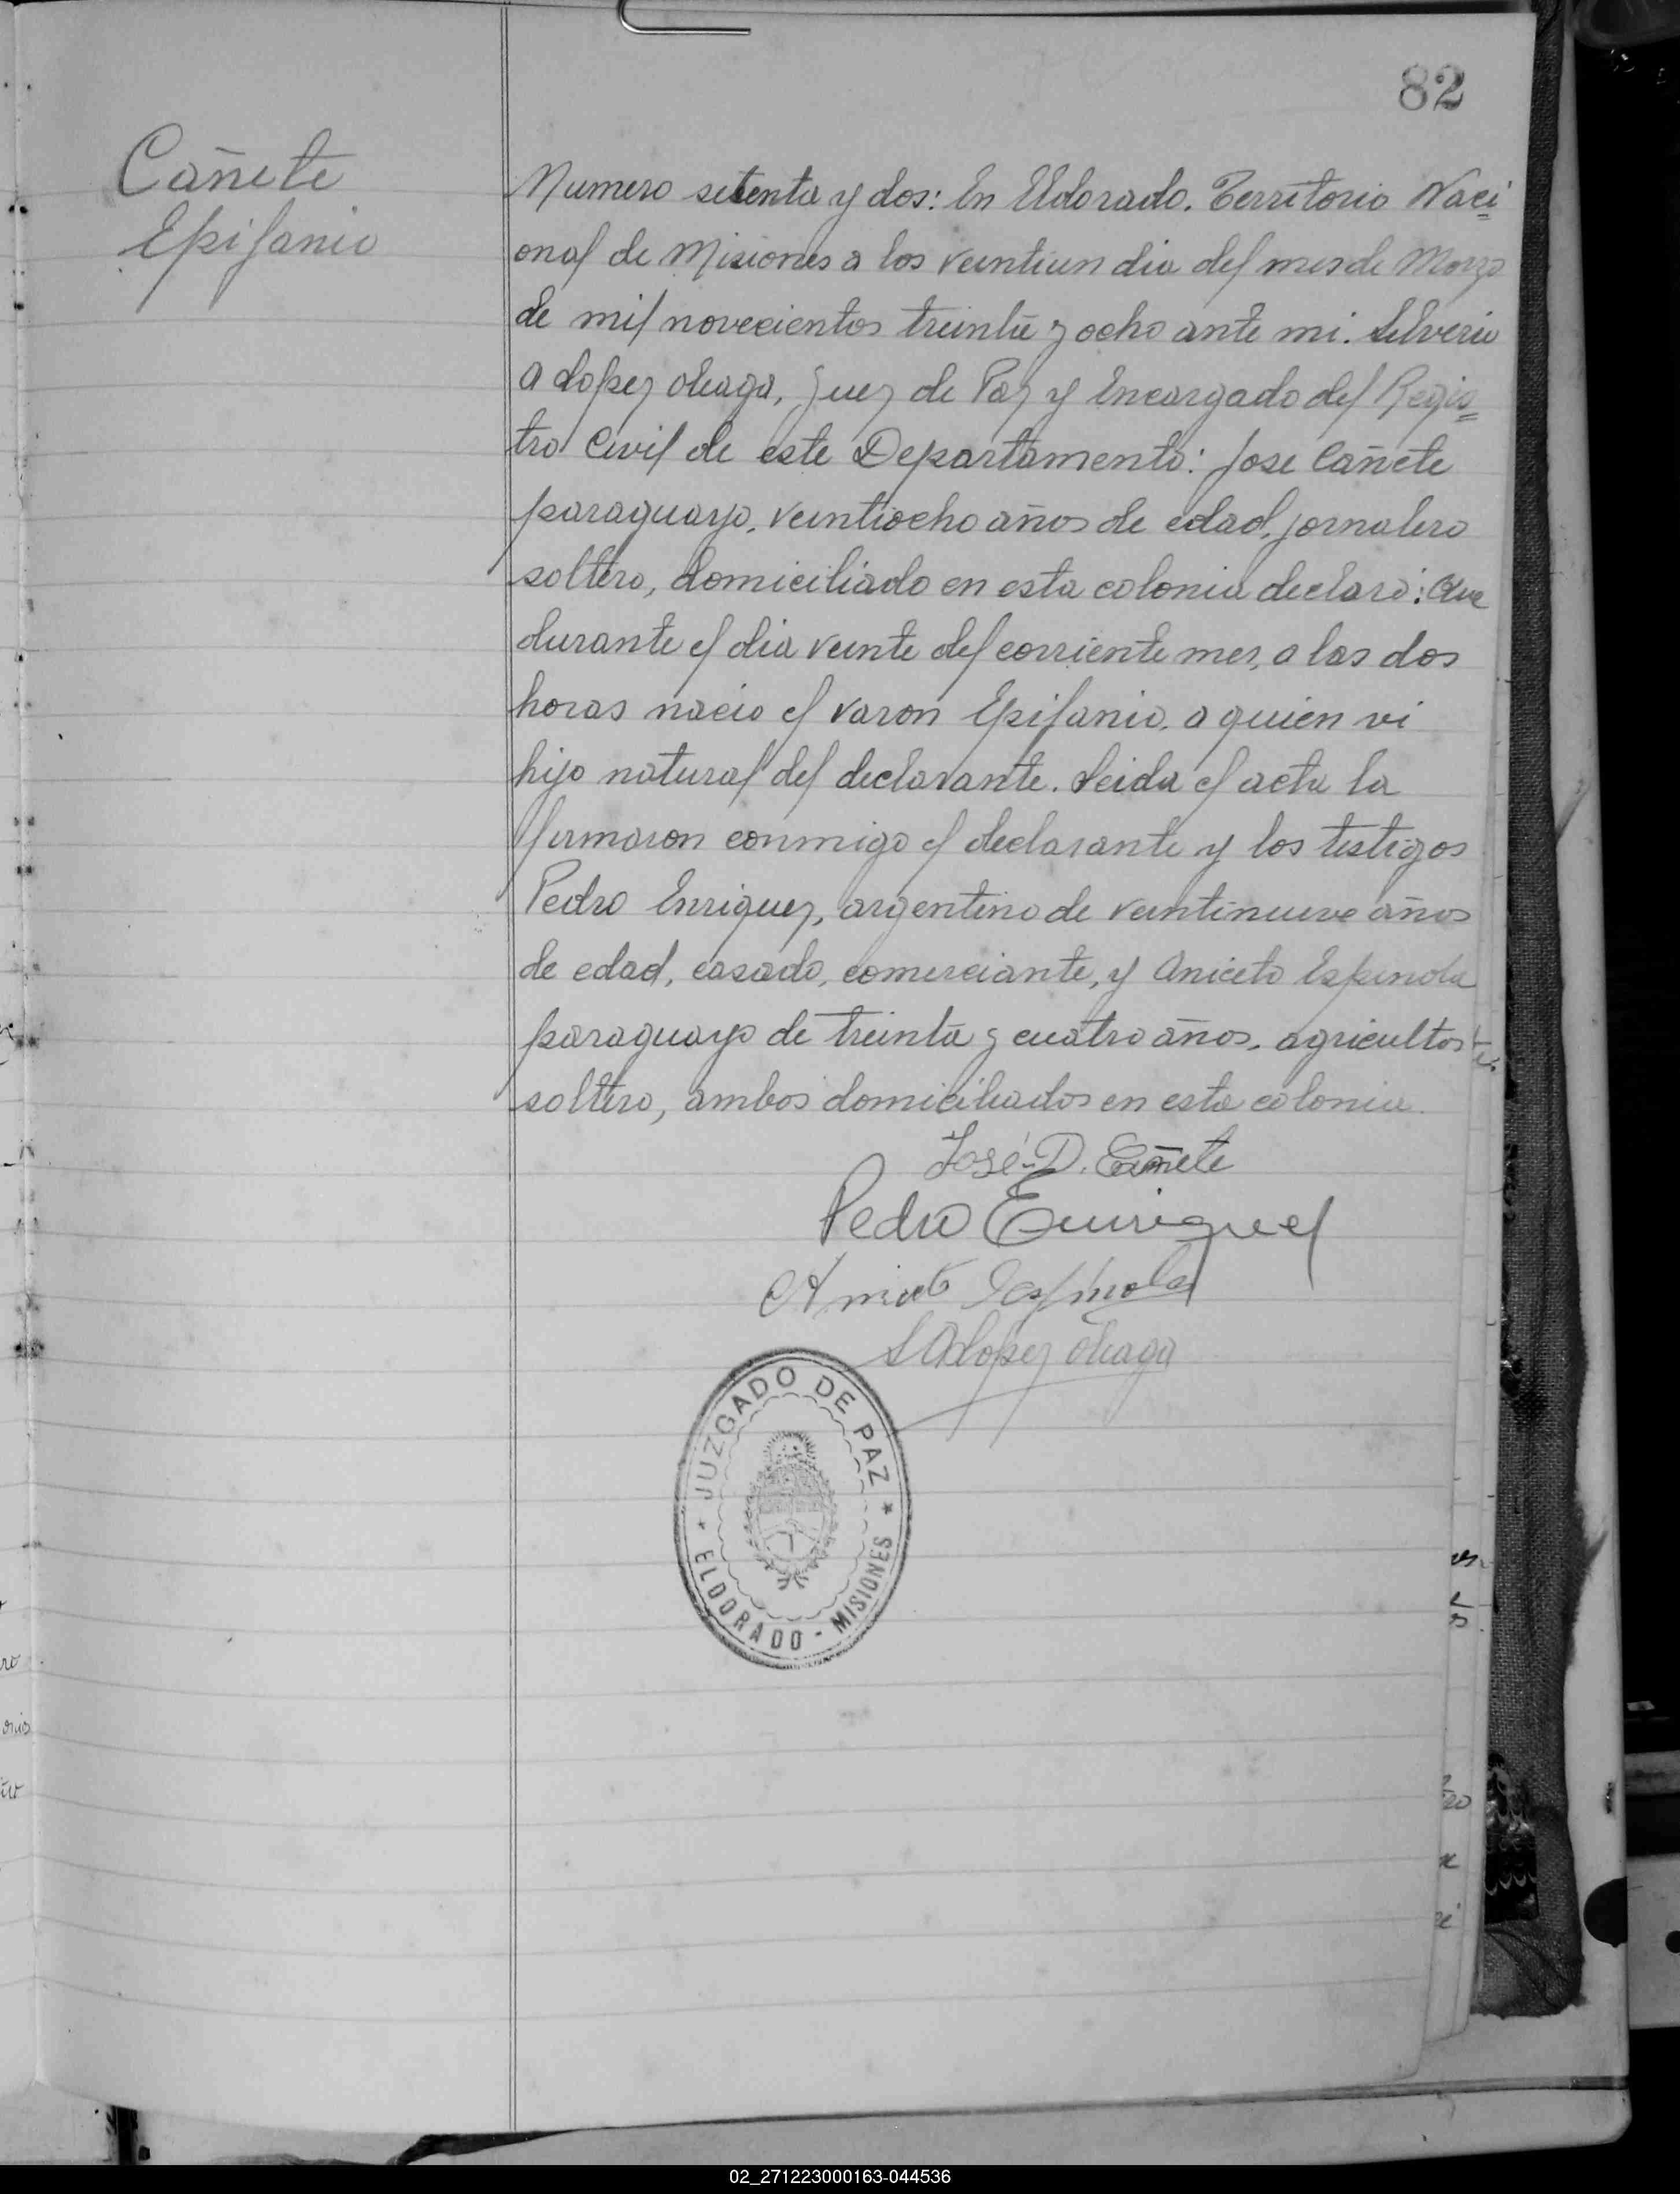 82
Cañete
Epifanio
Numero setenta y dos: En Eldorado. Territorio Naci=
onal de Misiones a los veintiun dia del mes de Marzo
de mil novecientos treinta y ocho ante mi. Silverio
A Lopez Oleaga, Juez de Paz y Encargado del Regis=
tro Civil de este Departamento: Jose Cañete
paraguayo, veintiocho años de edad, jornalero
soltero, domiciliado en esta colonia declaró: Que
durante el dia veinte del corriente mes, a las dos
horas nacio el varon Epifanio. a quien vi
hijo natural del declarante. Leida el acta la
firmaron conmigo el declarante y los testigos
Pedro Enriquez, argentino de veintinueve años
de edad, casado, comerciante, y Aniceto Espinola
paraguayo de treinta y cuatro años. agricultor
soltero, ambos domiciliados en esta colonia.
José D. Cañete
Pedro Enriquez
Aniceto Espinola
S A Lopez Oleaga
JUZGADO DE PAZ
* ELDORADO - MISIONES *
02_271223000163-044536